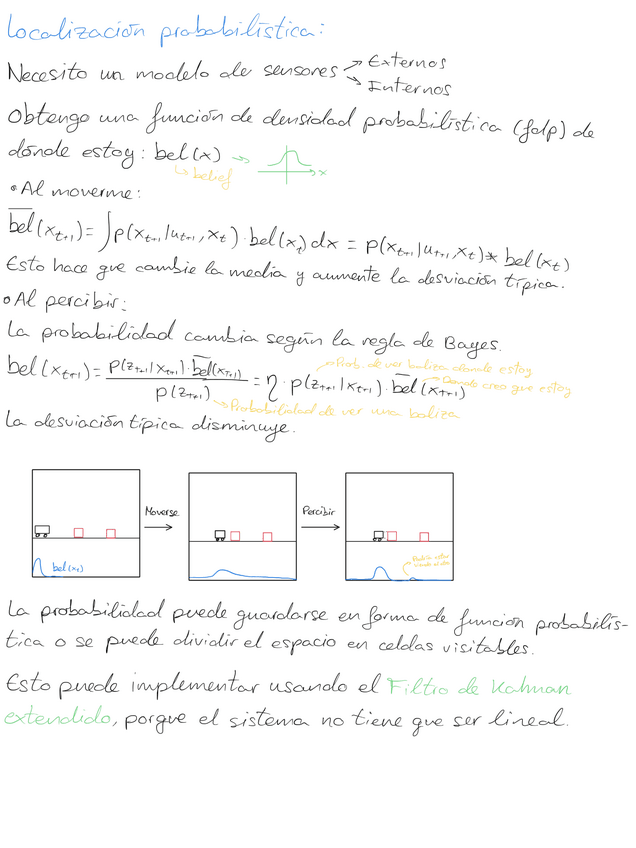 Localización probabilística:
Necesito un modelo de sensores → Externos
→ Internos
Obtengo una función de densidad probabilística (fdp) de
dónde estoy: bel(x) → x
↳ belief
• Al moverme:
bel̅(x_{t+1}) = ∫p(x_{t+1}|u_{t+1}, x_t)·bel(x_t) dx = p(x_{t+1}|u_{t+1}, x_t) * bel(x_t)
Esto hace que cambie la media y aumente la desviación típica.
• Al percibir:
La probabilidad cambia según la regla de Bayes.
bel(x_{t+1}) = p(z_{t+1}|x_{t+1})·bel̅(x_{t+1}) / p(z_{t+1}) = η·p(z_{t+1}|x_{t+1})·bel̅(x_{t+1})
→ Prob. de ver baliza donde estoy
→ Donde creo que estoy
→ Probabilidad de ver una baliza
La desviación típica disminuye.
Moverse
Percibir
bel(x_t)
Podría estar
viendo el otro
La probabilidad puede guardarse en forma de función probabilís-
tica o se puede dividir el espacio en celdas visitables.
Esto puede implementar usando el Filtro de Kalman
extendido, porque el sistema no tiene que ser lineal.